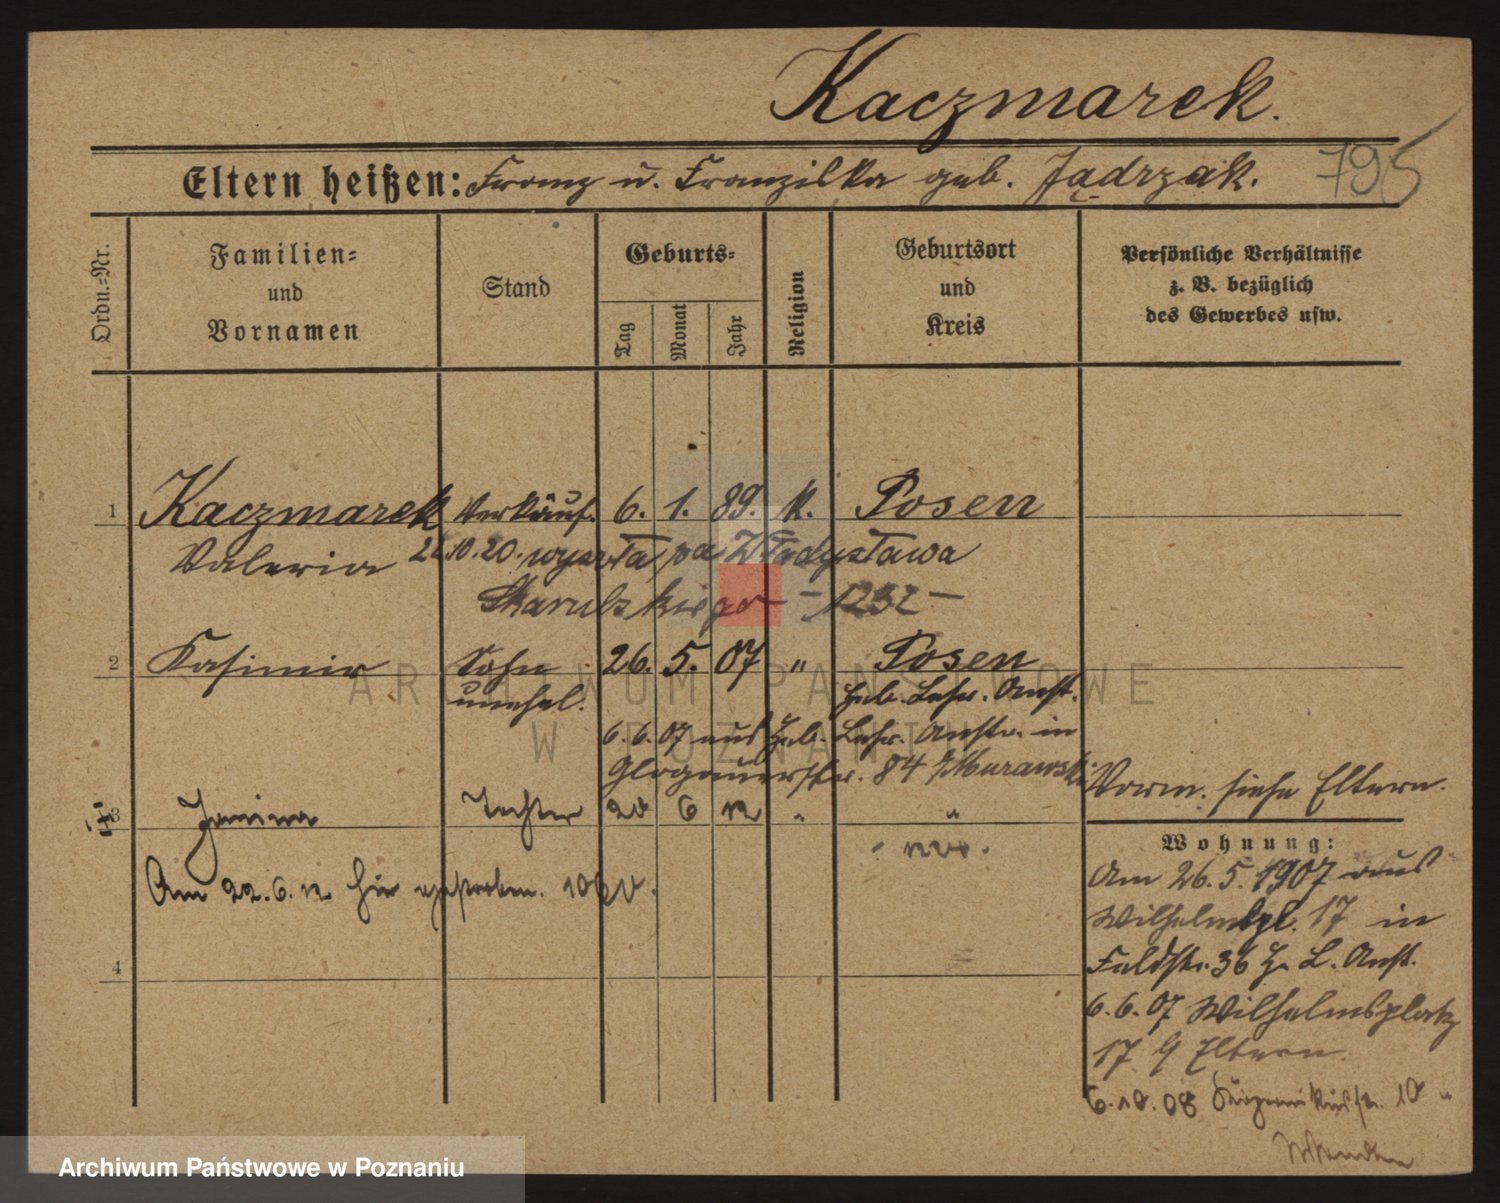 Kaczmarek.
Eltern heißen: Franz u. Franziska geb. Jądrzak. 795
Ordn.-Nr.
Familien-
und
Vornamen
Stand
Geburts-
Tag
Monat
Jahr
Religion
Geburtsort
und
Kreis
Persönliche Verhältnisse
z. B. bezüglich
des Gewerbes usw.
1 Kaczmarek Verkäuf. 6. 1. 89. K. Posen
Valeria 10.20. wyszła za Władysława
2 Kasimir Sohn 26. 5. 07 " Posen
unehel. Heb. Lehr. Anst.
6.6.07 aus Heb. Lehr. Anstr. in
Glogauerstr. 84 Murawski
3 Janina Tochter 20 6 12 " "
Am 22.6.12 hier gestorben.
4
Vorm. siehe Eltern.
Wohnung:
Am 26.5.1907 aus
Wilhelmspl. 17 in
Feldstr. 36 H. L. Anst.
6.6.07 Wilhelmsplatz
17 Eltern.
6.10.08 10 "
ARCHIWUM PAŃSTWOWE
W POZNANIU
Archiwum Państwowe w Poznaniu